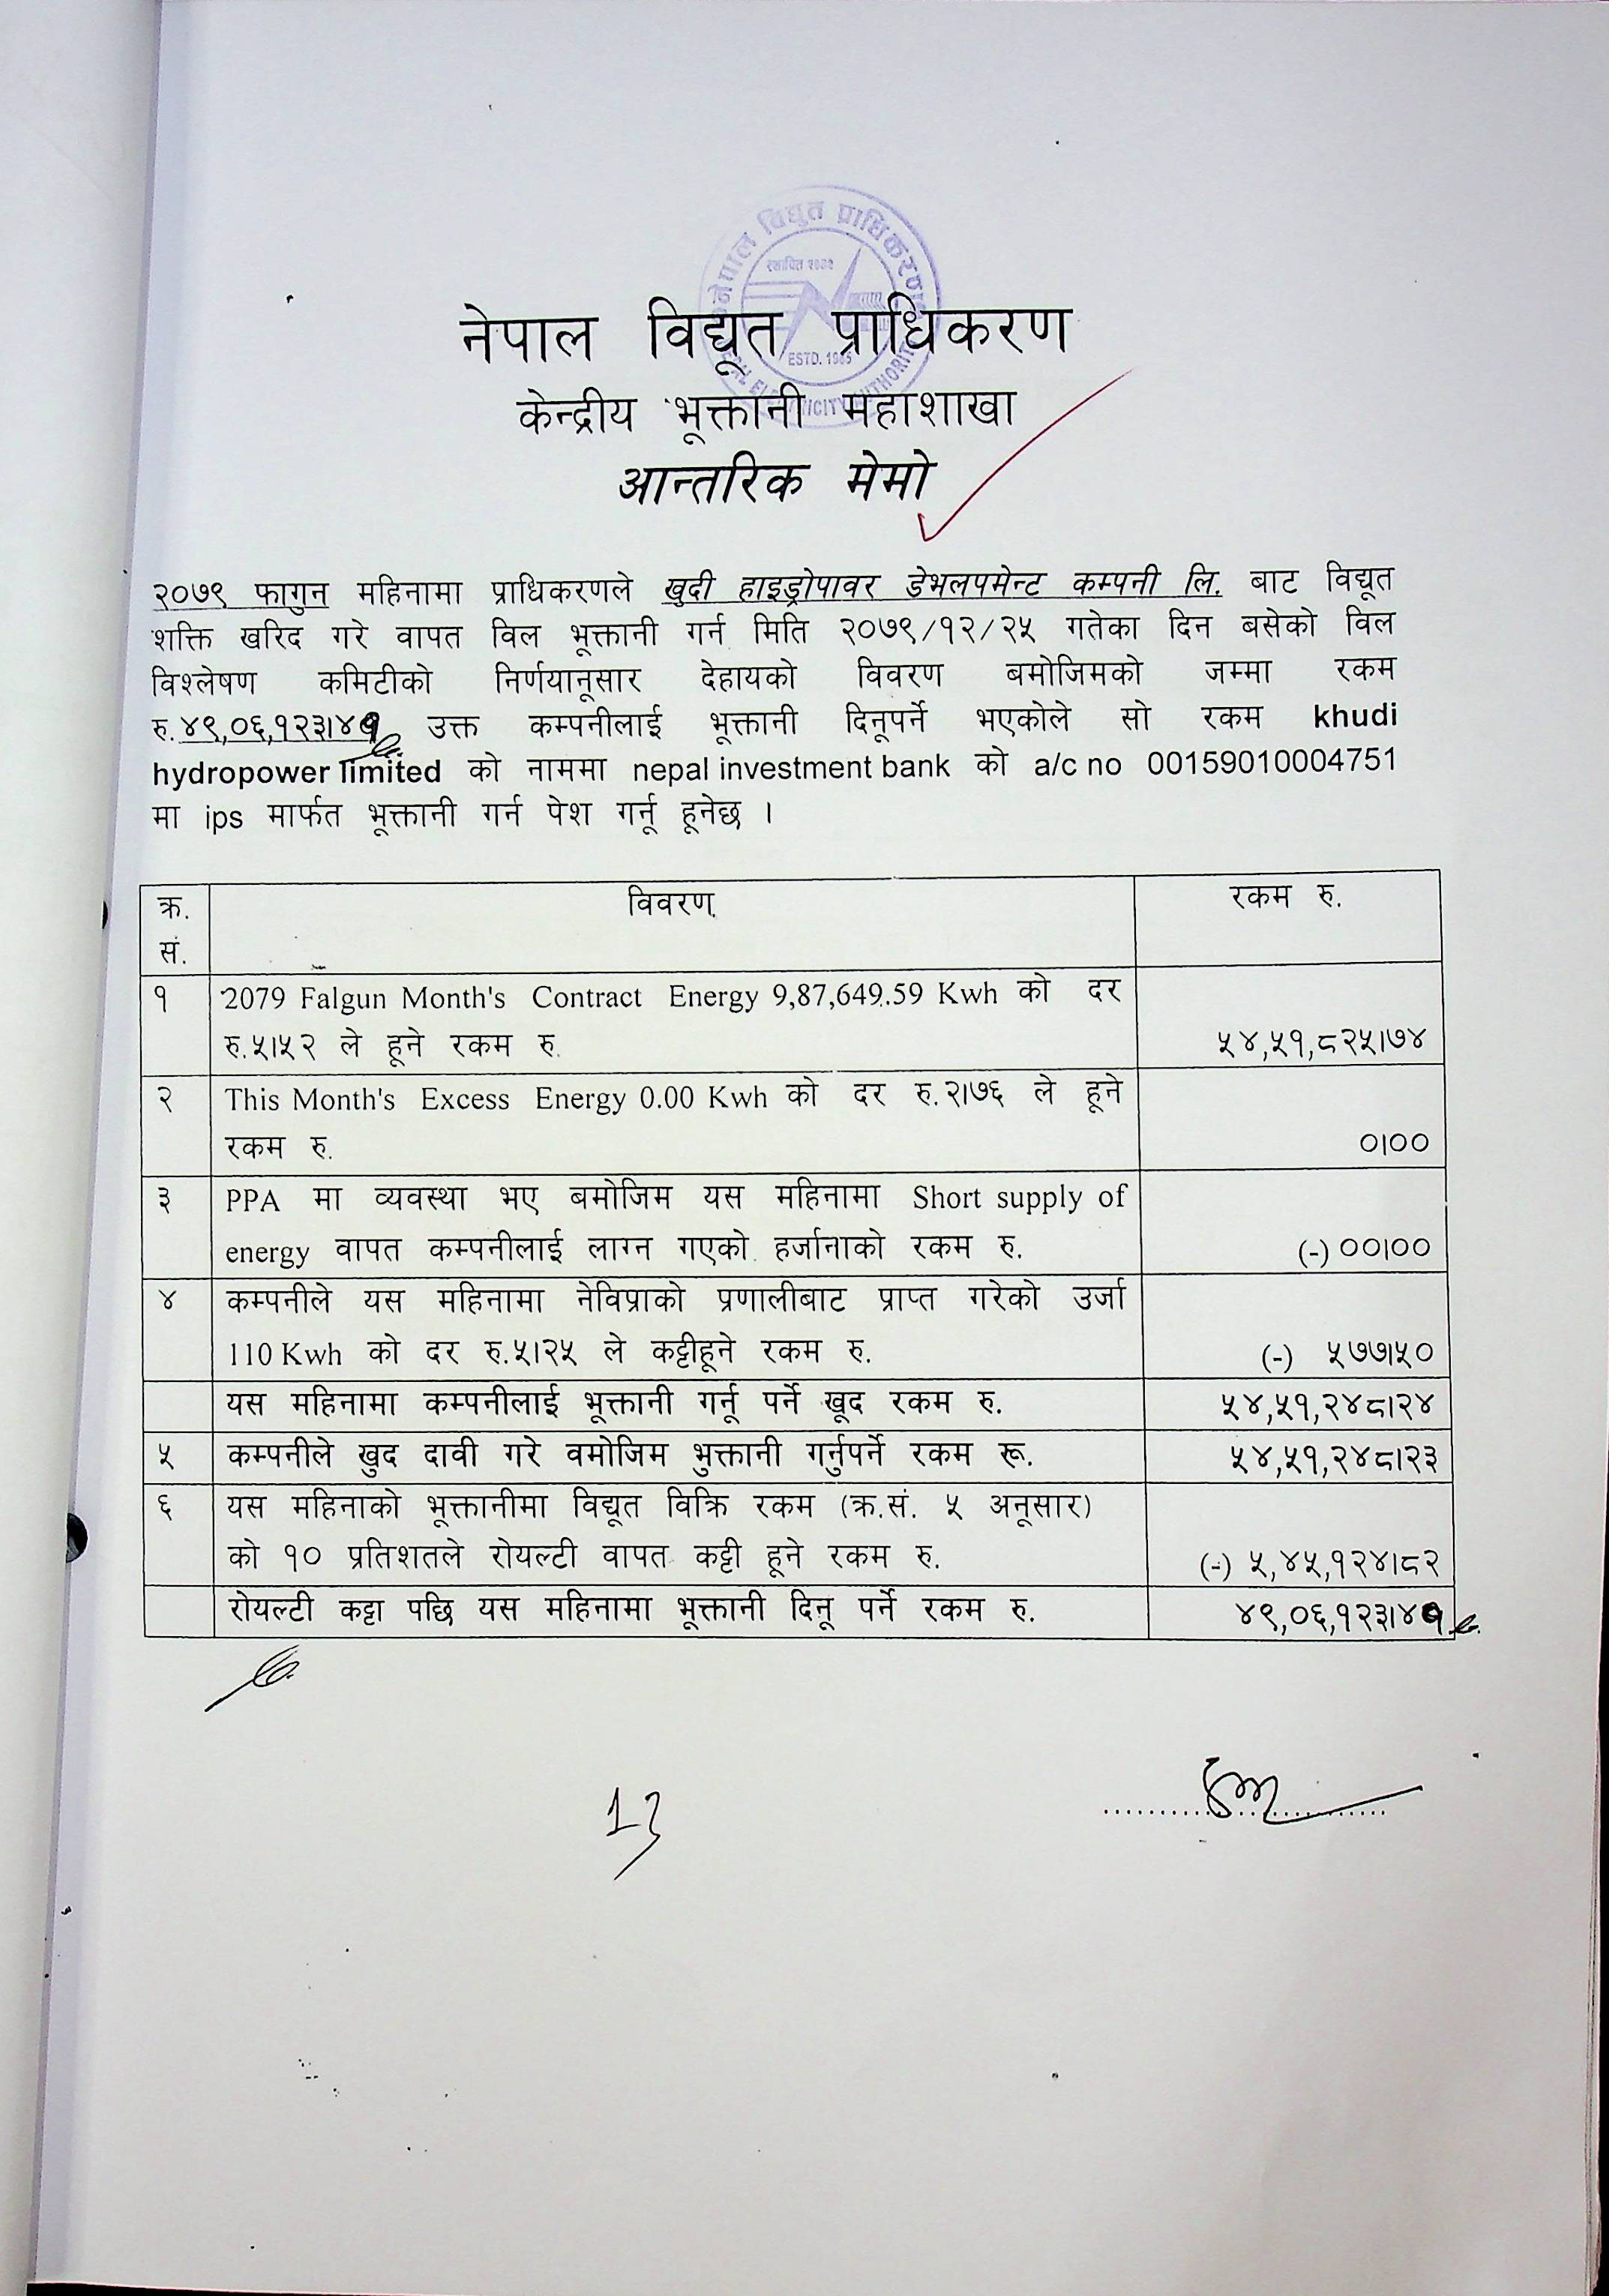 नेपाल विद्युत प्राधिकरण
स्थापित २०४२
ESTD. 1985
नेपाल विद्यूत प्राधिकरण
केन्द्रीय भूक्तानी महाशाखा
आन्तरिक मेमो
२०७९ फागुन महिनामा प्राधिकरणले खुदी हाइड्रोपावर डेभलपमेन्ट कम्पनी लि. बाट विद्यूत
शक्ति खरिद गरे वापत विल भूक्तानी गर्न मिति २०७९/१२/२५ गतेका दिन बसेको विल
विश्लेषण कमिटीको निर्णयानूसार देहायको विवरण बमोजिमको जम्मा रकम
रु.४९,०६,१२३।४१ उक्त कम्पनीलाई भूक्तानी दिनूपर्ने भएकोले सो रकम khudi
hydropower limited को नाममा nepal investment bank को a/c no 00159010004751
मा ips मार्फत भूक्तानी गर्न पेश गर्नू हूनेछ ।
क्र. सं. विवरण रकम रु.
१ 2079 Falgun Month's Contract Energy 9,87,649.59 Kwh को दर
रु.५।५२ ले हूने रकम रु. ५४,५१,८२५।७४
२ This Month's Excess Energy 0.00 Kwh को दर रु.२।७६ ले हूने
रकम रु. ०।००
३ PPA मा व्यवस्था भए बमोजिम यस महिनामा Short supply of
energy वापत कम्पनीलाई लाग्न गएको हर्जानाको रकम रु. (-) ००।००
४ कम्पनीले यस महिनामा नेविप्राको प्रणालीबाट प्राप्त गरेको उर्जा
110 Kwh को दर रु.५।२५ ले कट्टीहूने रकम रु. (-) ५७७।५०
यस महिनामा कम्पनीलाई भूक्तानी गर्नू पर्ने खूद रकम रु. ५४,५१,२४८।२४
५ कम्पनीले खुद दावी गरे वमोजिम भुक्तानी गर्नुपर्ने रकम रू. ५४,५१,२४८।२३
६ यस महिनाको भूक्तानीमा विद्यूत विक्रि रकम (क्र.सं. ५ अनूसार)
को १० प्रतिशतले रोयल्टी वापत कट्टी हूने रकम रु. (-) ५,४५,१२४।८२
रोयल्टी कट्टा पछि यस महिनामा भूक्तानी दिनू पर्ने रकम रु. ४९,०६,१२३।४१